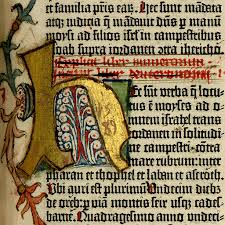 et familia pr̄is eaꝝ. Hec sunt mādata
atqꝫ iudicia q̄ mādauit dn̄s ꝑ manū
moysi ad filios isrl̄ in campestribus
moab supra iordanem cōtra iherichō
Explicit liber numerorum
liber deuteronomii
Ec sūt verba q̄ locut⁹
moyses ad omnem
israhel trans
iordanem in solitudine
campestri · cōtra
mare rubrum: inter
pharan et thophel et laban et aseroth:
Vbi auri est plurimū. Undecim dieb⁹
de oreb ꝑ viā montis seir vsqꝫ cades
barne. Quadragesimo anno vndeci-